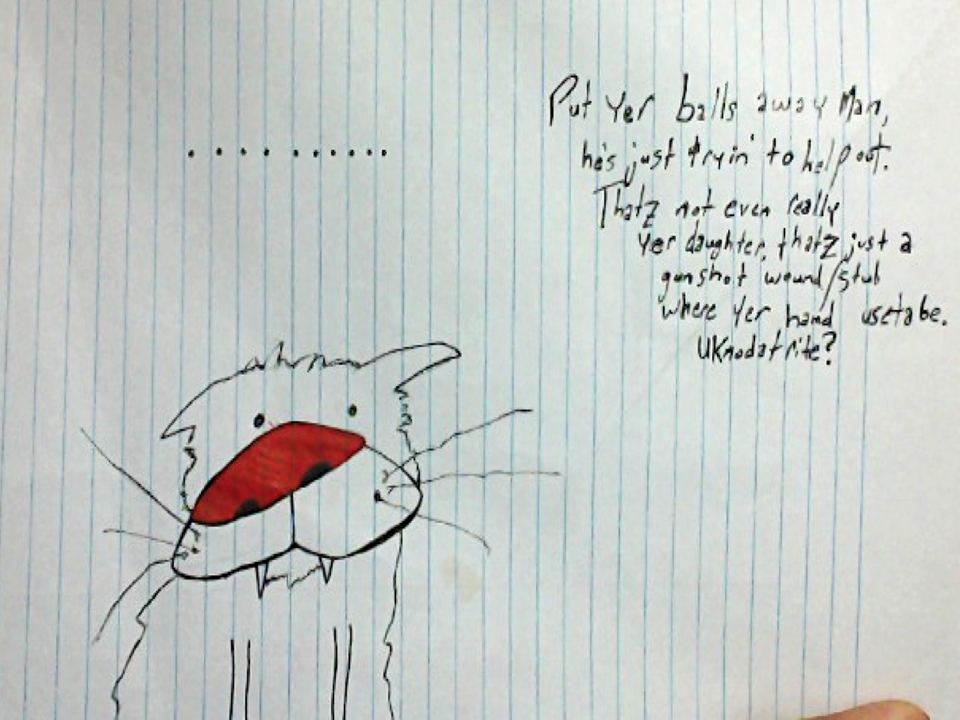 ..........
Put Yer balls away Man,
he's just tryin' to help out.
Thatz not even really
yer daughter, thatz just a
gunshot wound/stub
where Yer hand usetabe.
UKnodat rite?